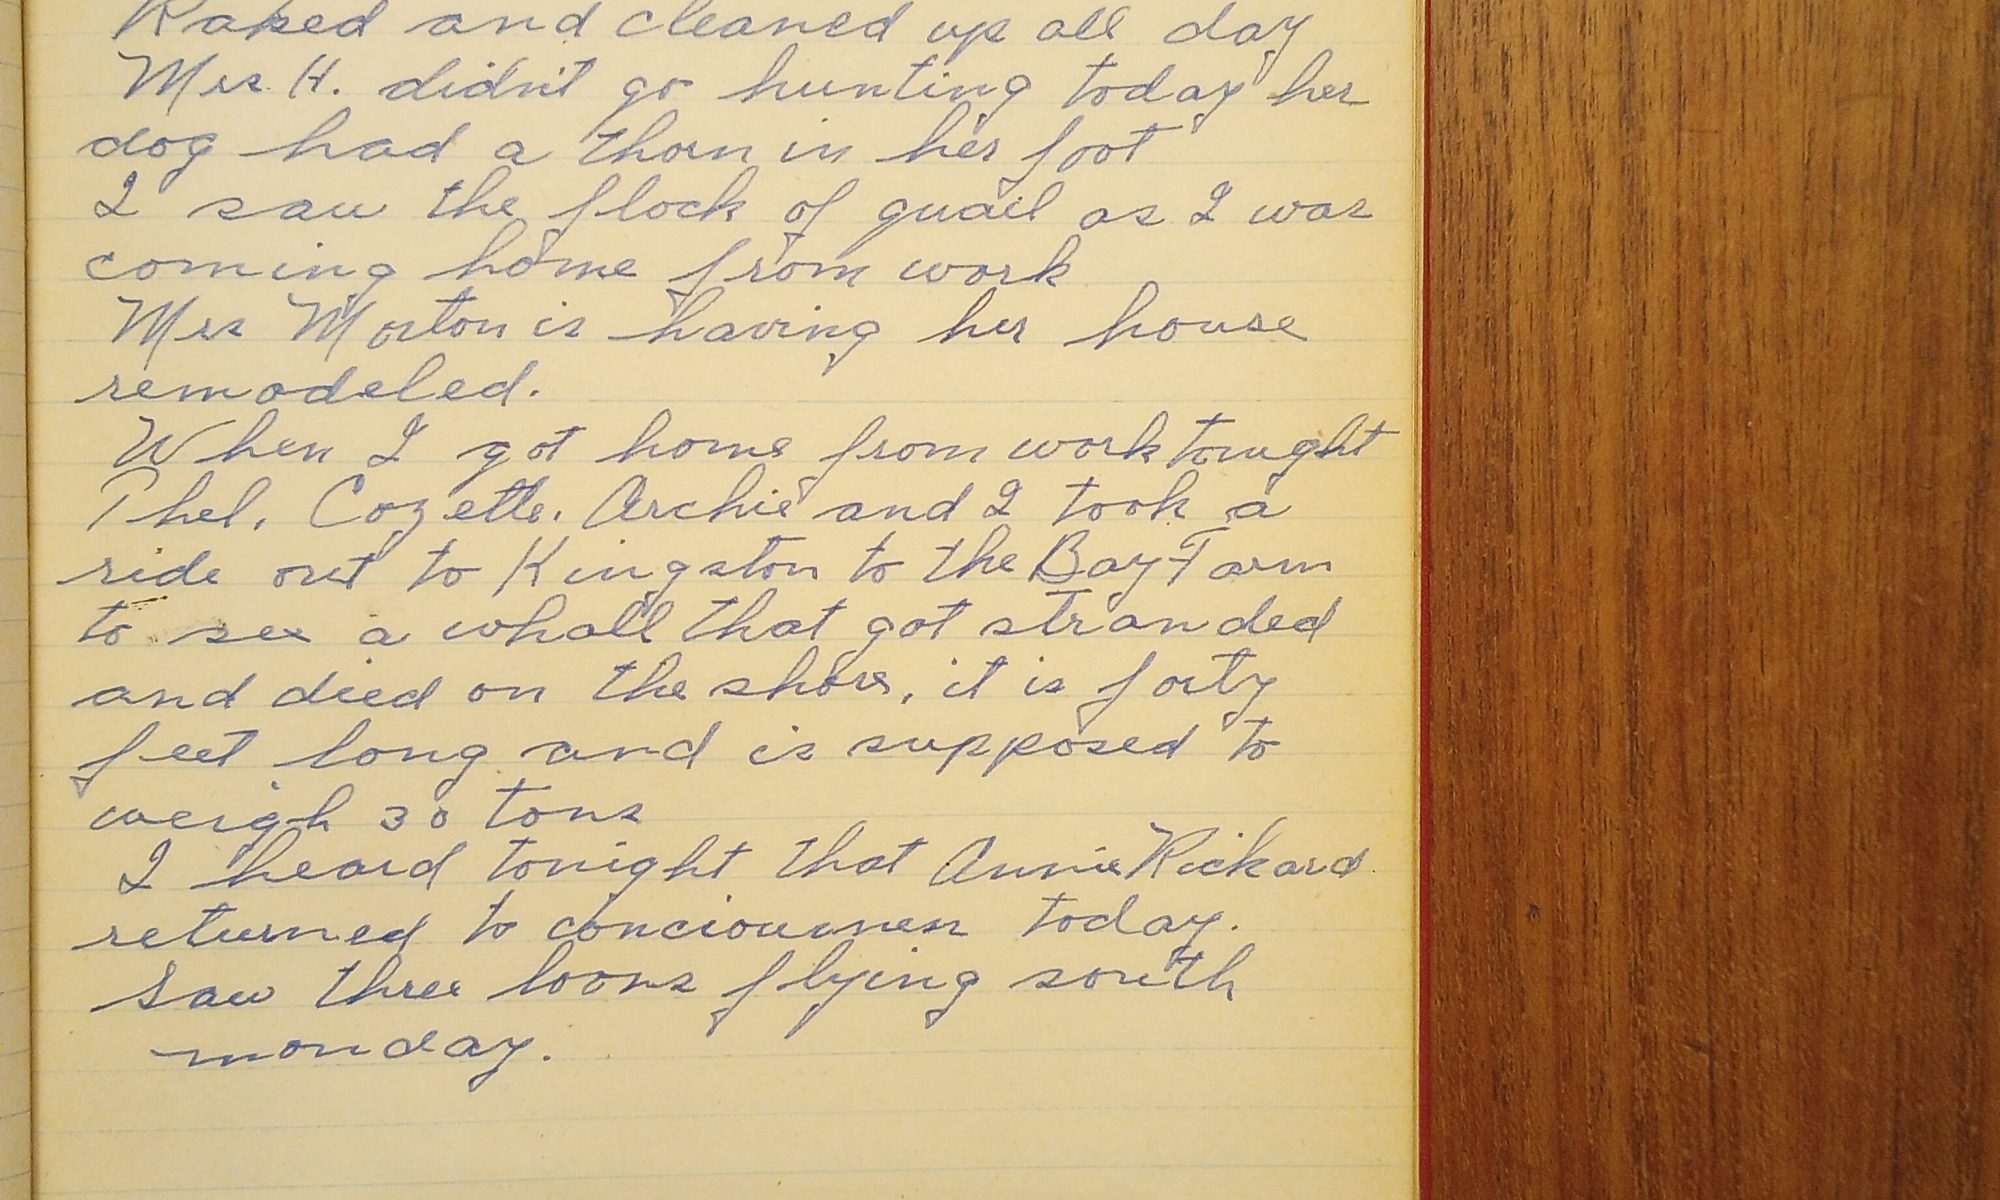 Raked and cleaned up all day
Mrs. H. didn't go hunting today her
dog had a thorn in her foot
I saw the flock of quail as I was
coming home from work
Mrs Morton is having her house
remodeled.
When I got home from work tonight
Phel, Cozette, Archie and I took a
ride out to Kingston to the Bay Farm
to see a whall that got stranded
and died on the shore, it is forty
feet long and is supposed to
weigh 30 tons
I heard tonight that Annie Rickard
returned to conciousness today.
Saw three loons flying south
monday.